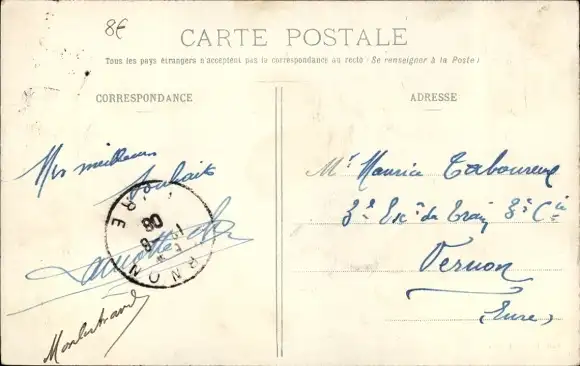 8€
CARTE POSTALE
Tous les pays étrangers n'acceptent pas la correspondance au recto (Se renseigner à la Poste)
CORRESPONDANCE
ADRESSE
Mes meilleurs
souhaits
Mr Maurice Taboureux
3e Esc. du Train 3e Cie
Vernon
Eure
VERNON
08